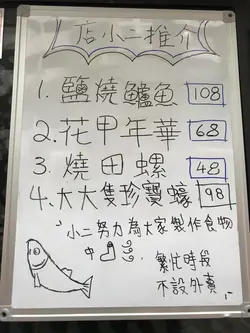 店小二推介
1. 鹽燒鱸魚 108
2. 花甲年華 68
3. 燒田螺 48
4. 大大隻珍寶蠔 98
小二努力為大家製作食物
中
繁忙時段
不設外賣